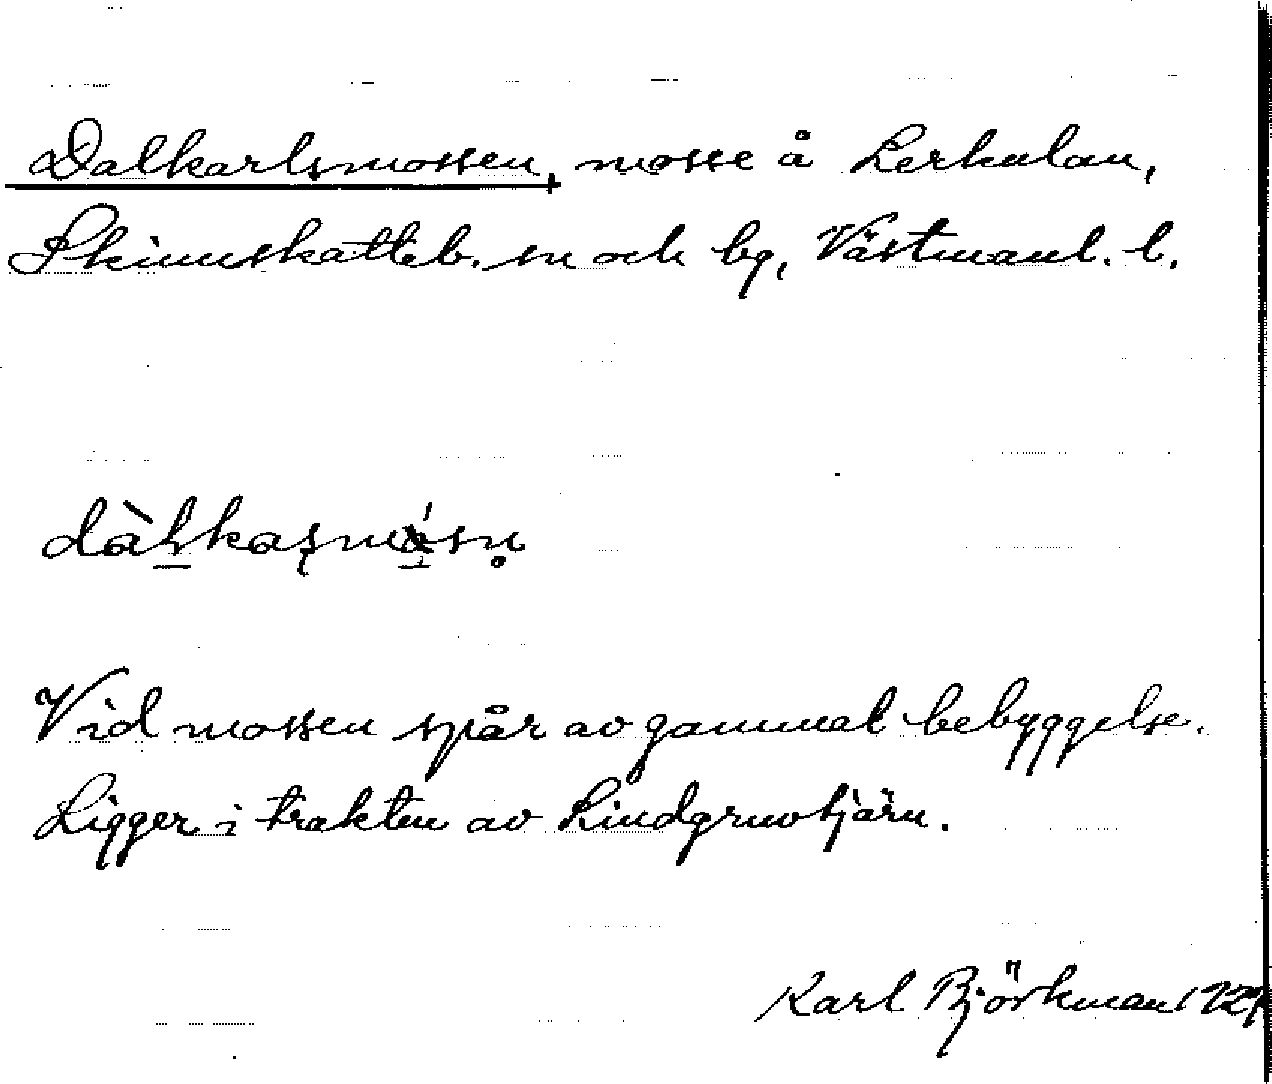 Dalkarlsmossen, mosse å Lerkulan,
Skinnskatteb. sn och bg, Västmanl. l.
Vid mossen spår av gammal bebyggelse.
Ligger i trakten av Lindgruvtjärn.
Karl Björkman